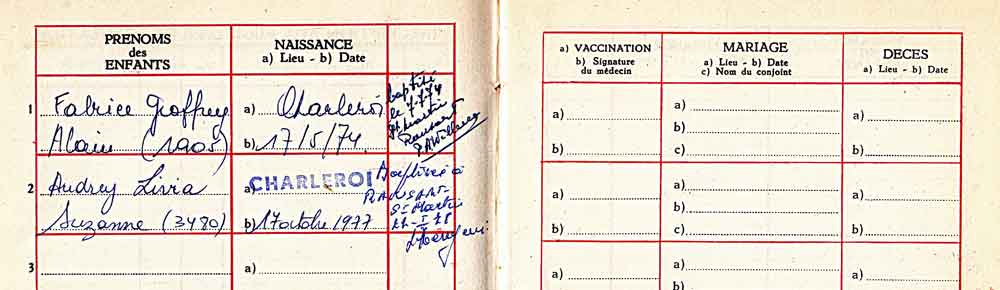 PRENOMS
des
ENFANTS
NAISSANCE
a) Lieu - b) Date
1 Fabrice Geoffrey
Alain (1905)
a) Charleroi
b) 17/5/74.
baptisé
le 7-7-74
St Martin
Ransart
2 Audrey Livia
Suzanne (3480)
a) CHARLEROI
b) 17 octobre 1977
Baptisée à
RANSART-
St Martin
22-I-78
3
a)
a) VACCINATION
b) Signature
du médecin
MARIAGE
a) Lieu - b) Date
c) Nom du conjoint
DECES
a) Lieu - b) Date
a)
b)
a)
b)
c)
a)
b)
a)
b)
a)
b)
c)
a)
b)
a)
a)
b)
a)